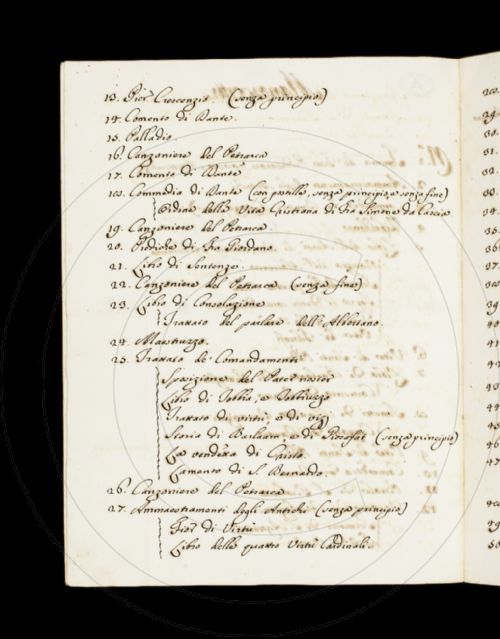 13. Pier Crescenzio. (senza principio)
14. Comento di Dante.
15. Palladio.
16. Canzoniere del Petrarca
17. Comento di Dante
18. Commedia di Dante (con postille, senza principio e senza fine)
Ordine della Vita Cristiana di Fra Simone da Cascia.
19. Canzoniere del Petrarca.
20. Prediche di Fra Giordano.
21. Libro di Sentenze.
22. Canzoniere del Petrarca (senza fine)
23. Libro di Consolazione
Trattato del parlare dell'Albertano.
24. Maestruzzo.
25. Trattato de' Comandamenti
Sposizione del Pater noster
Libro di Tobbia, e Tobbiuzzo
Trattato di virtù, e di vizj
Storia di Barlaam, e di Giosafat (senza principio)
La vendetta di Cristo.
Lamento di S. Bernardo.
26. Canzoniere del Petrarca
27. Ammaestramenti degli Antichi (senza principio)
Fior di Virtù
Libro delle quattro Virtù Cardinali.